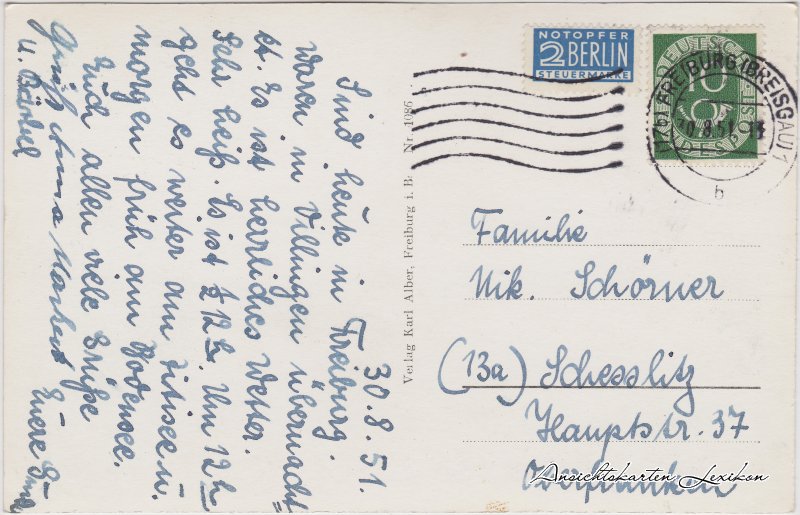 30.8.51.
Sind heute in Freiburg.
Waren in Villingen übernacht
et. Es ist herrliches Wetter.
Sehr heiß. Es ist ½ 12 h. Um 12 h
geht es weiter am Titisee u.
morgen früh am Bodensee.
Euch allen viele Grüße
Eure
u. Bärbel
Verlag Karl Alber, Freiburg i. Nr. 1086
NOTOPFER
2 BERLIN
STEUERMARKE
DEUTSCHE
10
(17b) FREIBURG (BREISGAU) 1
b
Familie
Nik. Schörner
(13a) Schesslitz
Hauptstr. 37
Oberfranken
Ansichtskarten Lexikon